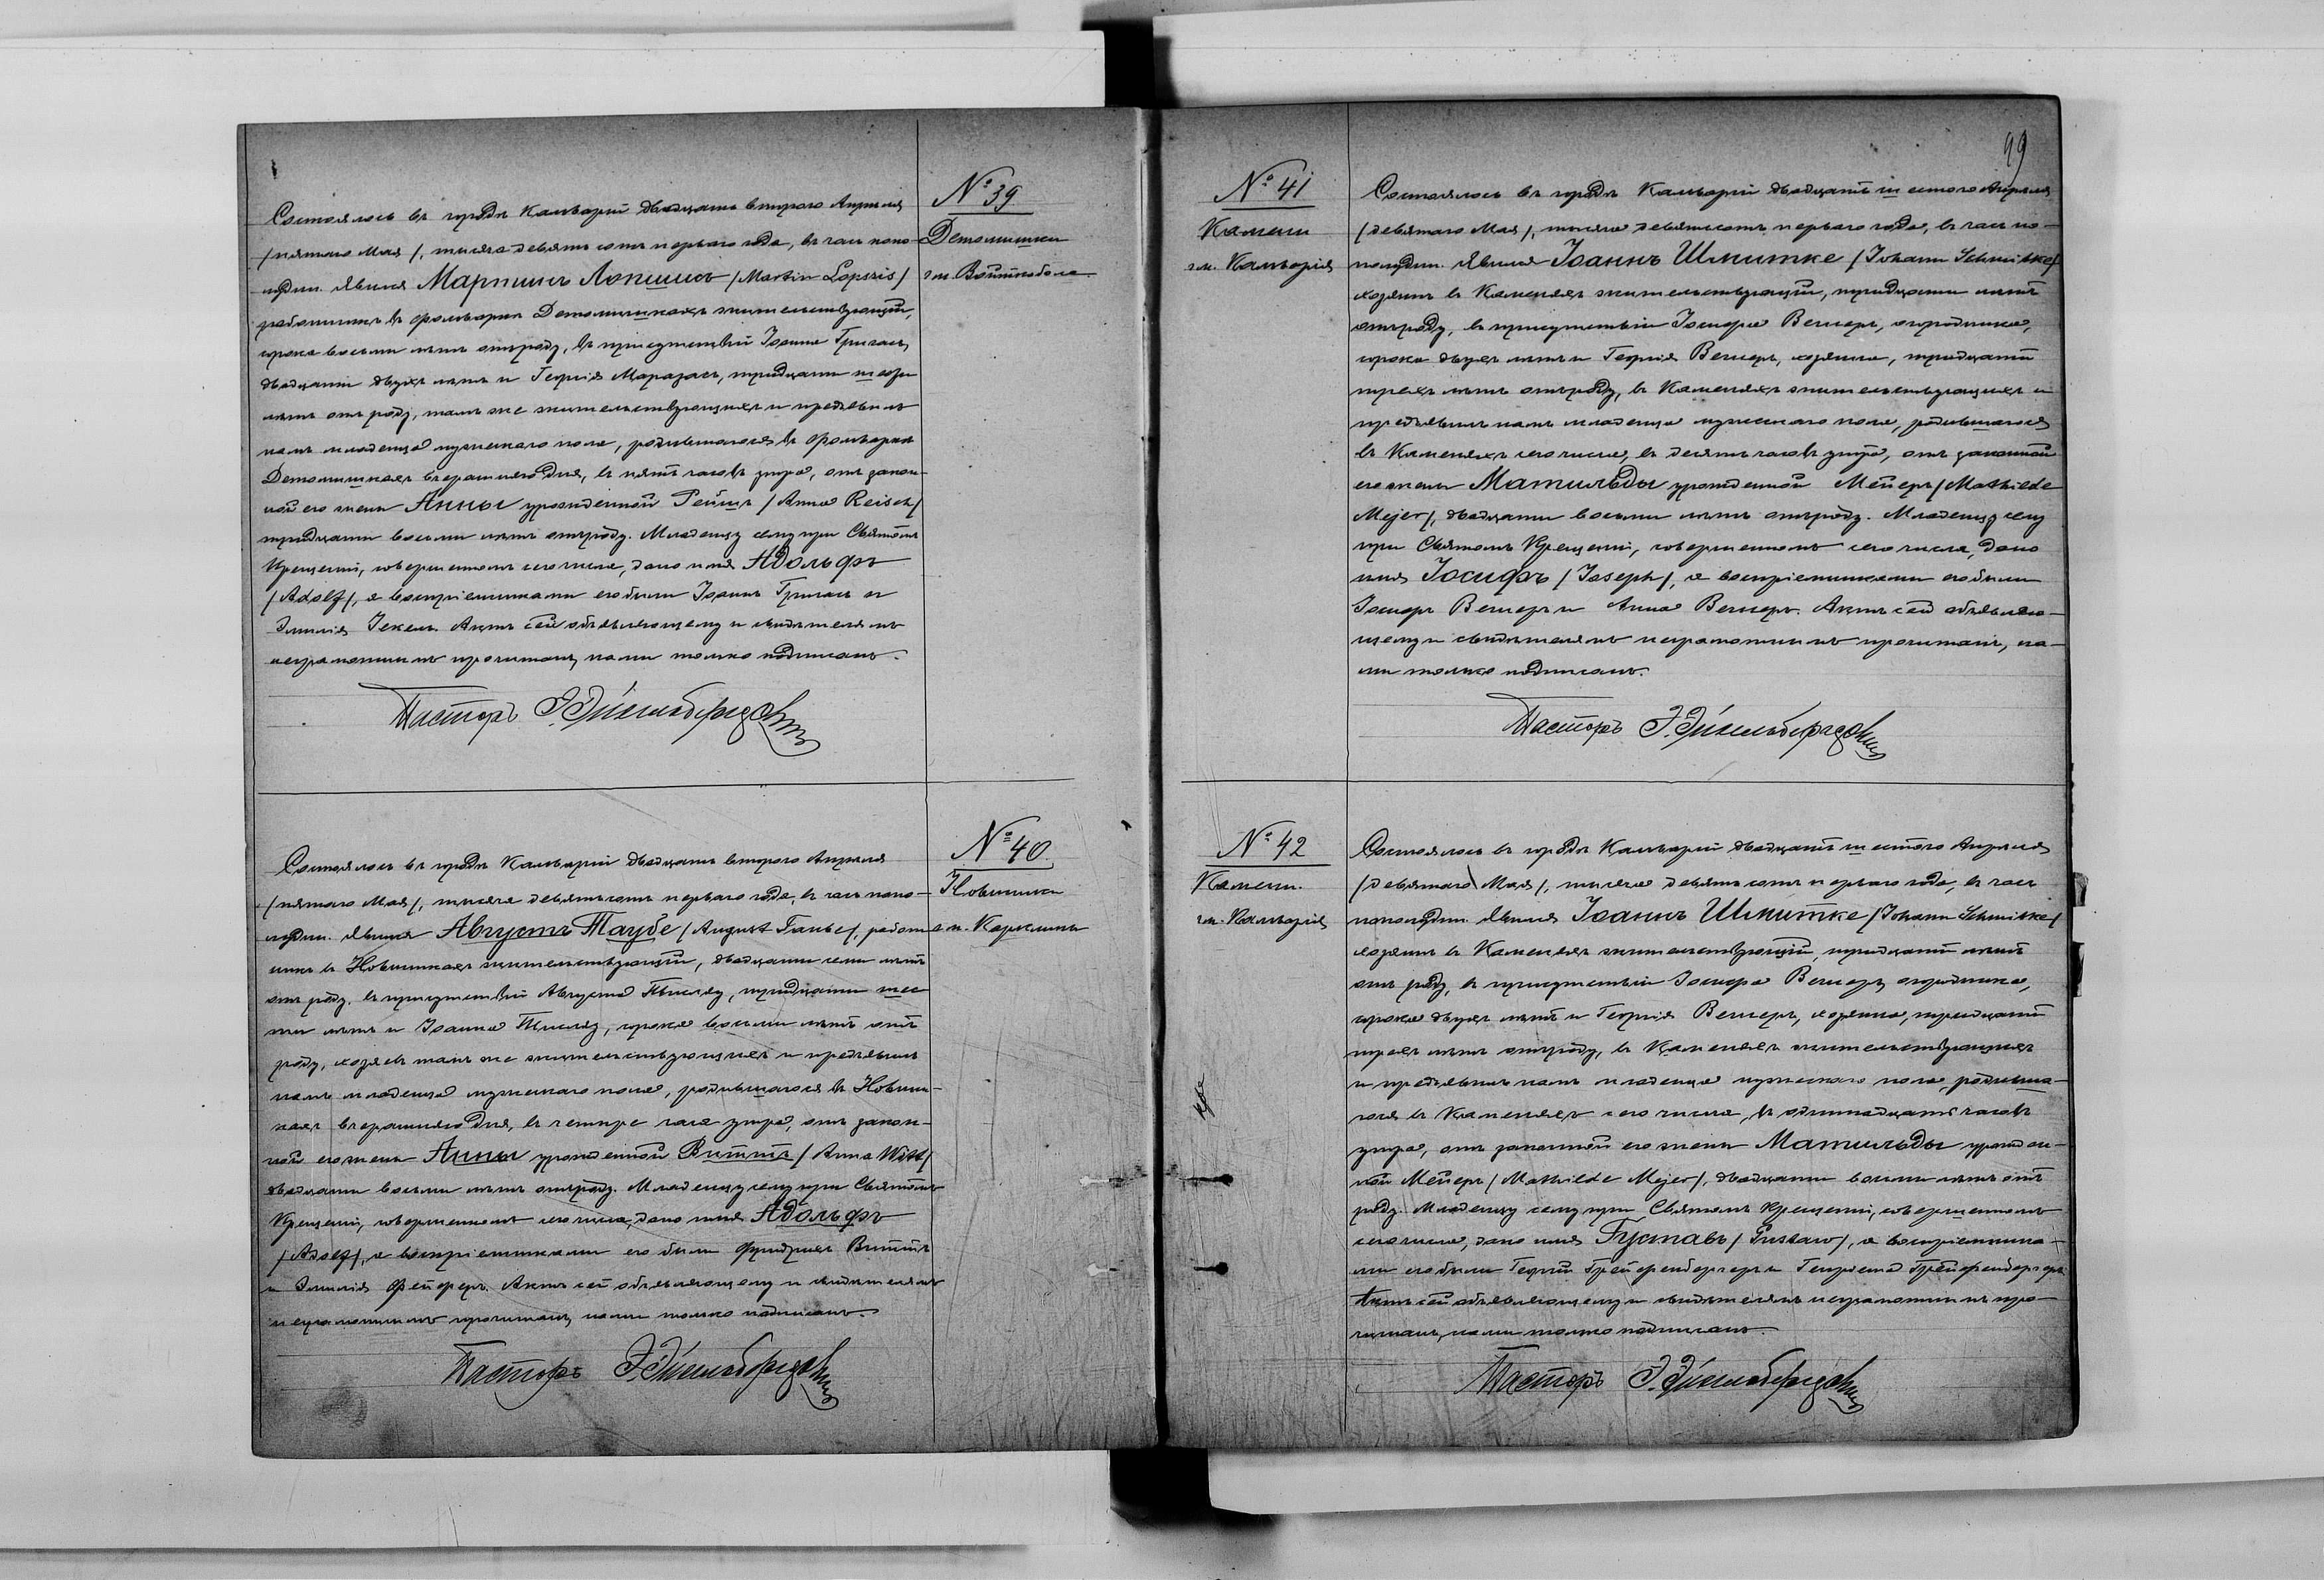 № 39
Детомишки
гм. Войткобола
Состоялось въ городѣ Кальваріи двадцать второго Апрѣля
/пятаго Мая/, тысяча девятьсотъ перваго года, въ часъ попо-
лудни. Явился Мартинъ Лопшисъ /Martin Lopszis/
работникъ въ фольваркѣ Детомишкахъ жительствующій,
сорока восьми лѣтъ отъ роду, въ присутствіи Іоанна Григасъ,
двадцати двухъ лѣтъ и Георгія тридцати
лѣтъ отъ роду, тамъ же жительствующихъ и предъявилъ
намъ младенца мужескаго пола, родившагося въ фольваркѣ
Детомишкахъ вчерашняго дня, въ пять часовъ утра, отъ закон-
ной его жены Анны урожденной Рейшъ /Anna Reisch/
тридцати восьми лѣтъ отъ роду. Младенцу сему при Святомъ
Крещеніи, совершенномъ сего числа, дано имя Адольфъ
/Adolf/, а воспріемниками его были Іоаннъ Григасъ и
Эмилія Іекель. Актъ сей объявляющему и свидѣтелямъ
неграмотнымъ прочитанъ, нами только подписанъ.
Пасторъ Э.
№ 40.
Новинники
гм. Карклины
Состоялось въ городѣ Кальваріи двадцать второго Апрѣля
/пятаго Мая/, тысяча девятьсотъ перваго года, въ часъ попо-
лудни. Явился Августъ Таубе /August Taube/, работ-
никъ въ Новинникахъ жительствующій, двадцати семи лѣтъ
отъ роду, въ присутствіи Августа тридцати шес-
ти лѣтъ и Іоанна сорока восьми лѣтъ отъ
роду, хозяевъ тамъ же жительствующихъ и предъявилъ
намъ младенца мужескаго пола, родившагося въ Новинни-
кахъ вчерашняго дня, въ четыре часа утра, отъ закон-
ной его жены Анны урожденной Виттъ /Anna Witt/
двадцати восьми лѣтъ отъ роду. Младенцу сему при Святомъ
Крещеніи, совершенномъ сего числа, дано имя Адольфъ
/Adolf/, а воспріемниками его были Фридрихъ Виттъ
и Эмилія Фейферъ. Актъ сей объявляющему и свидѣтелямъ
неграмотнымъ прочитанъ, нами только подписанъ.
Пасторъ Э.
99
№ 41
Камени
гм. Кальварія
Состоялось въ городѣ Кальваріи двадцать шестого Апрѣля
/девятаго Мая/, тысяча девятьсотъ перваго года, въ часъ по-
полудни. Явился Іоаннъ Шмитке /Johann Schmitke/
хозяинъ въ Каменяхъ жительствующій, тридцати лѣтъ
отъ роду, въ присутствіи Іосифа Вернеръ, огородника,
сорока двухъ лѣтъ и Георгія Вернеръ, хозяина, тридцати
трехъ лѣтъ отъ роду, въ Каменяхъ жительствующихъ и
предъявилъ намъ младенца мужескаго пола, родившагося
въ Каменяхъ сего числа, въ десять часовъ утра, отъ законной
его жены Матильды урожденной Мейеръ /Mathilde
Mejer/, двадцати восьми лѣтъ отъ роду. Младенцу сему
при Святомъ Крещеніи, совершенномъ сего числа, дано
имя Іосифъ /Joseph/, а воспріемниками его были
Іосифъ Вернеръ и Анна Вернеръ. Актъ сей объявляю-
щему и свидѣтелямъ неграмотнымъ прочитанъ, на-
ми только подписанъ.
Пасторъ Э.
№ 42
Камени.
гм. Кальварія
Состоялось въ городѣ Кальваріи двадцать шестого Апрѣля
/девятаго Мая/, тысяча девятьсотъ перваго года, въ часъ
пополудни. Явился Іоаннъ Шмитке /Johann Schmitke/
хозяинъ въ Каменяхъ жительствующій, тридцати лѣтъ
отъ роду, въ присутствіи Іосифа Вернеръ, огородника,
сорока двухъ лѣтъ и Георгія Вернеръ, хозяина, тридцати
трехъ лѣтъ отъ роду, въ Каменяхъ жительствующихъ
и предъявилъ намъ младенца мужескаго пола, родивша-
гося въ Каменяхъ сего числа, въ одиннадцать часовъ
утра, отъ законной его жены Матильды урожден-
ной Мейеръ /Mathilde Mejer/, двадцати восьми лѣтъ отъ
роду. Младенцу сему при Святомъ Крещеніи, совершенномъ
сего числа, дано имя Густавъ /Gustaw/, а воспріемника-
ми его были Георгій Грейфенбергеръ и Генріета Грейфенбергеръ.
Актъ сей объявляющему и свидѣтелямъ неграмотнымъ про-
читанъ, нами только подписанъ.
Пасторъ Э.